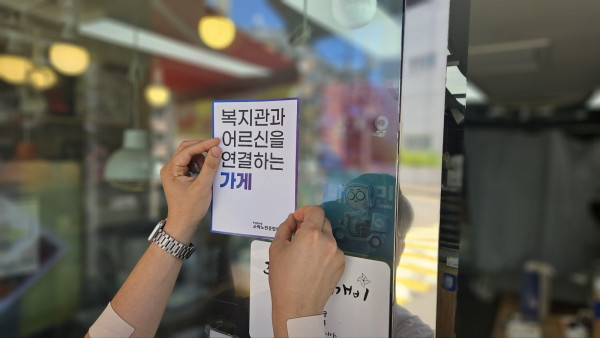 복지관과
어르신을
연결하는
가게